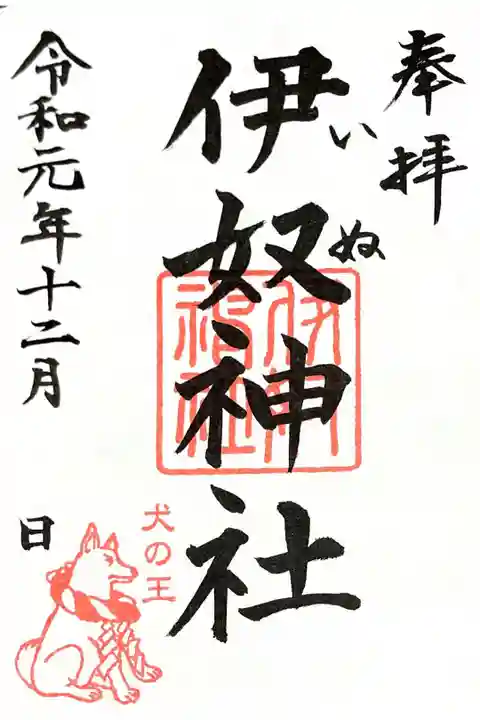 奉拝
伊奴神社
いぬ
伊奴神社
令和元年十二月
日
犬の王